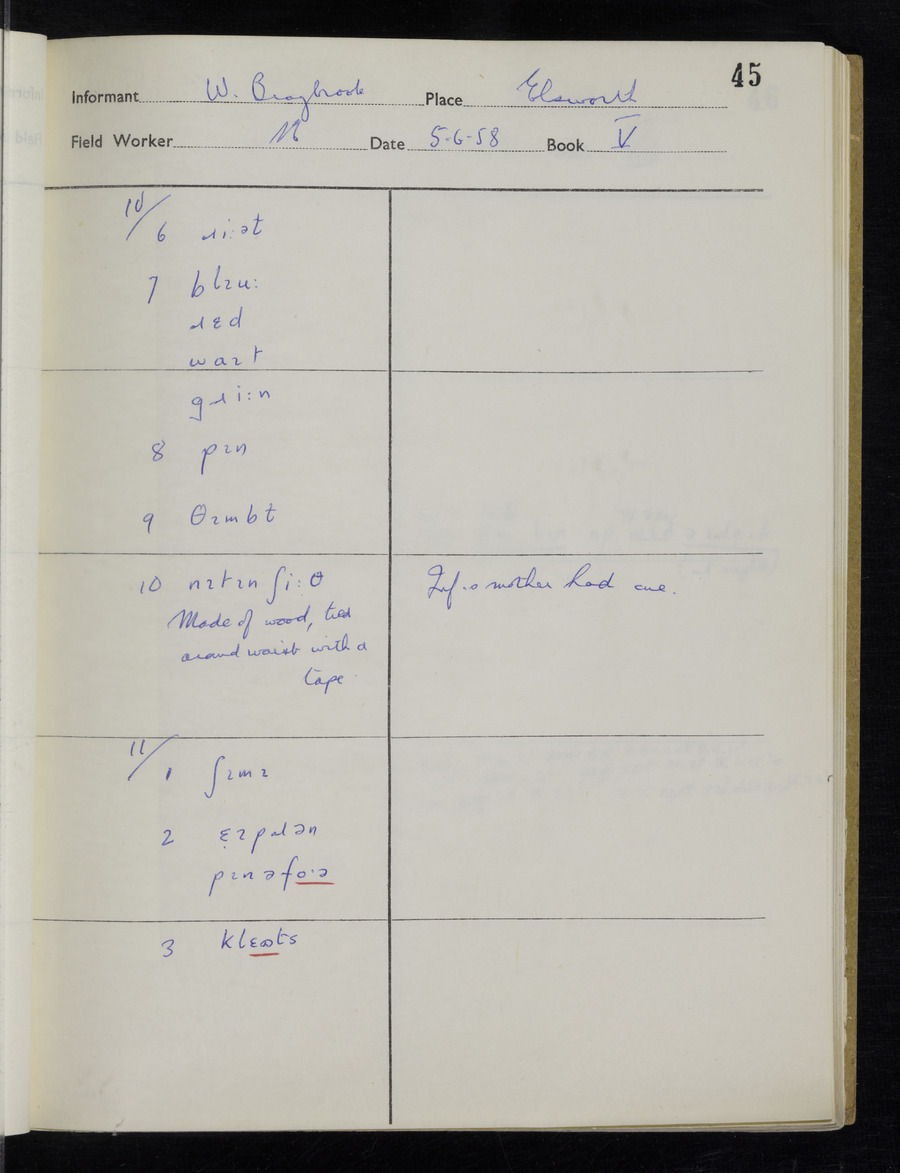 45
Informant W. Braybrook Place Elsworth
Field Worker Date 5-6-58 Book V
10/
6 ɹiːət
7 blɪuː
ɹɛd
waɪt
gɹiːn
8 pɪn
9 θɪmbɫ
10 nɪtɪn ʃiːθ Inf.'s mother had one.
Made of wood, tied
around waist with a
tape
11/
1 ʃɪmɪ
2 ɛ̣ɪpɹən
pɪnəfoˑə
3 klɛɷts